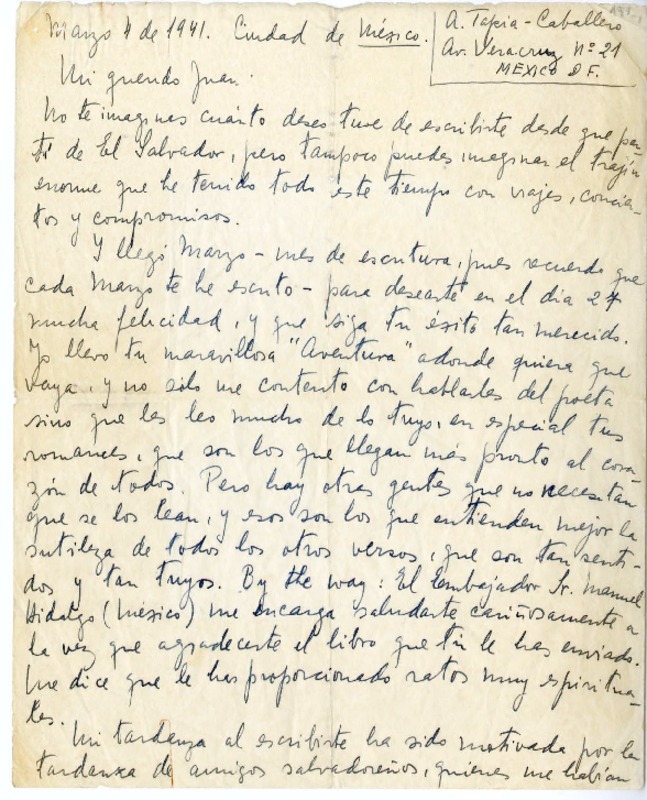 Marzo 4 de 1941. Ciudad de México.
A. Tapia-Caballero
Av. Veracruz Nº 21
MEXICO D.F.
Mi querido Juan.
No te imaginas cuánto deseo tuve de escribirte desde que par-
tí de El Salvador, pero tampoco puedes imaginar el trajín
enorme que he tenido todo este tiempo con viajes, concier-
tos y compromisos.
Y llegó Marzo - mes de escritura, pues recuerdo que
cada Marzo te he escrito - para desearte en el día 27
mucha felicidad, y que siga tu éxito tan merecido.
Yo llevo tu maravillosa "Aventura" adonde quiera que
vaya, y no sólo me contento con hablarles del poeta
sino que les leo mucho de lo tuyo, en especial tus
romances, que son los que llegan más pronto al cora-
zón de todos. Pero hay otras gentes que no necesitan
que se los lean, y esos son los que entienden mejor la
sutileza de todos los otros versos, que son tan senti-
dos y tan tuyos. By the way: El Embajador Sr. Manuel
Hidalgo (México) me encarga saludarte cariñosamente a
la vez que agradecerte el libro que tú le has enviado.
Me dice que le has proporcionado ratos muy espiritua-
les.
Mi tardanza al escribirte ha sido motivada por la
tardanza de amigos salvadoreños, quienes me habían